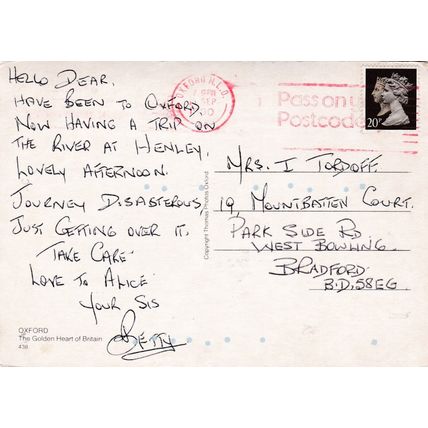 HELLO DEAR,
HAVE BEEN TO OXFORD,
NOW HAVING A TRIP ON
THE RIVER AT HENLEY,
LOVELY AFTERNOON.
JOURNEY DISASTEROUS,
JUST GETTING OVER IT.
TAKE CARE
LOVE TO ALICE
YOUR SIS
BETTY
OXFORD
The Golden Heart of Britain
438
Copyright Thomas Photos Oxford
OXFORD M.L.O.
SEP
Pass on
Postcode
20P
MRS. I TORDOFF.
19, MOUNTBATTEN COURT.
PARK SIDE RD.
WEST BOWLING.
BRADFORD.
B.D.58EG.